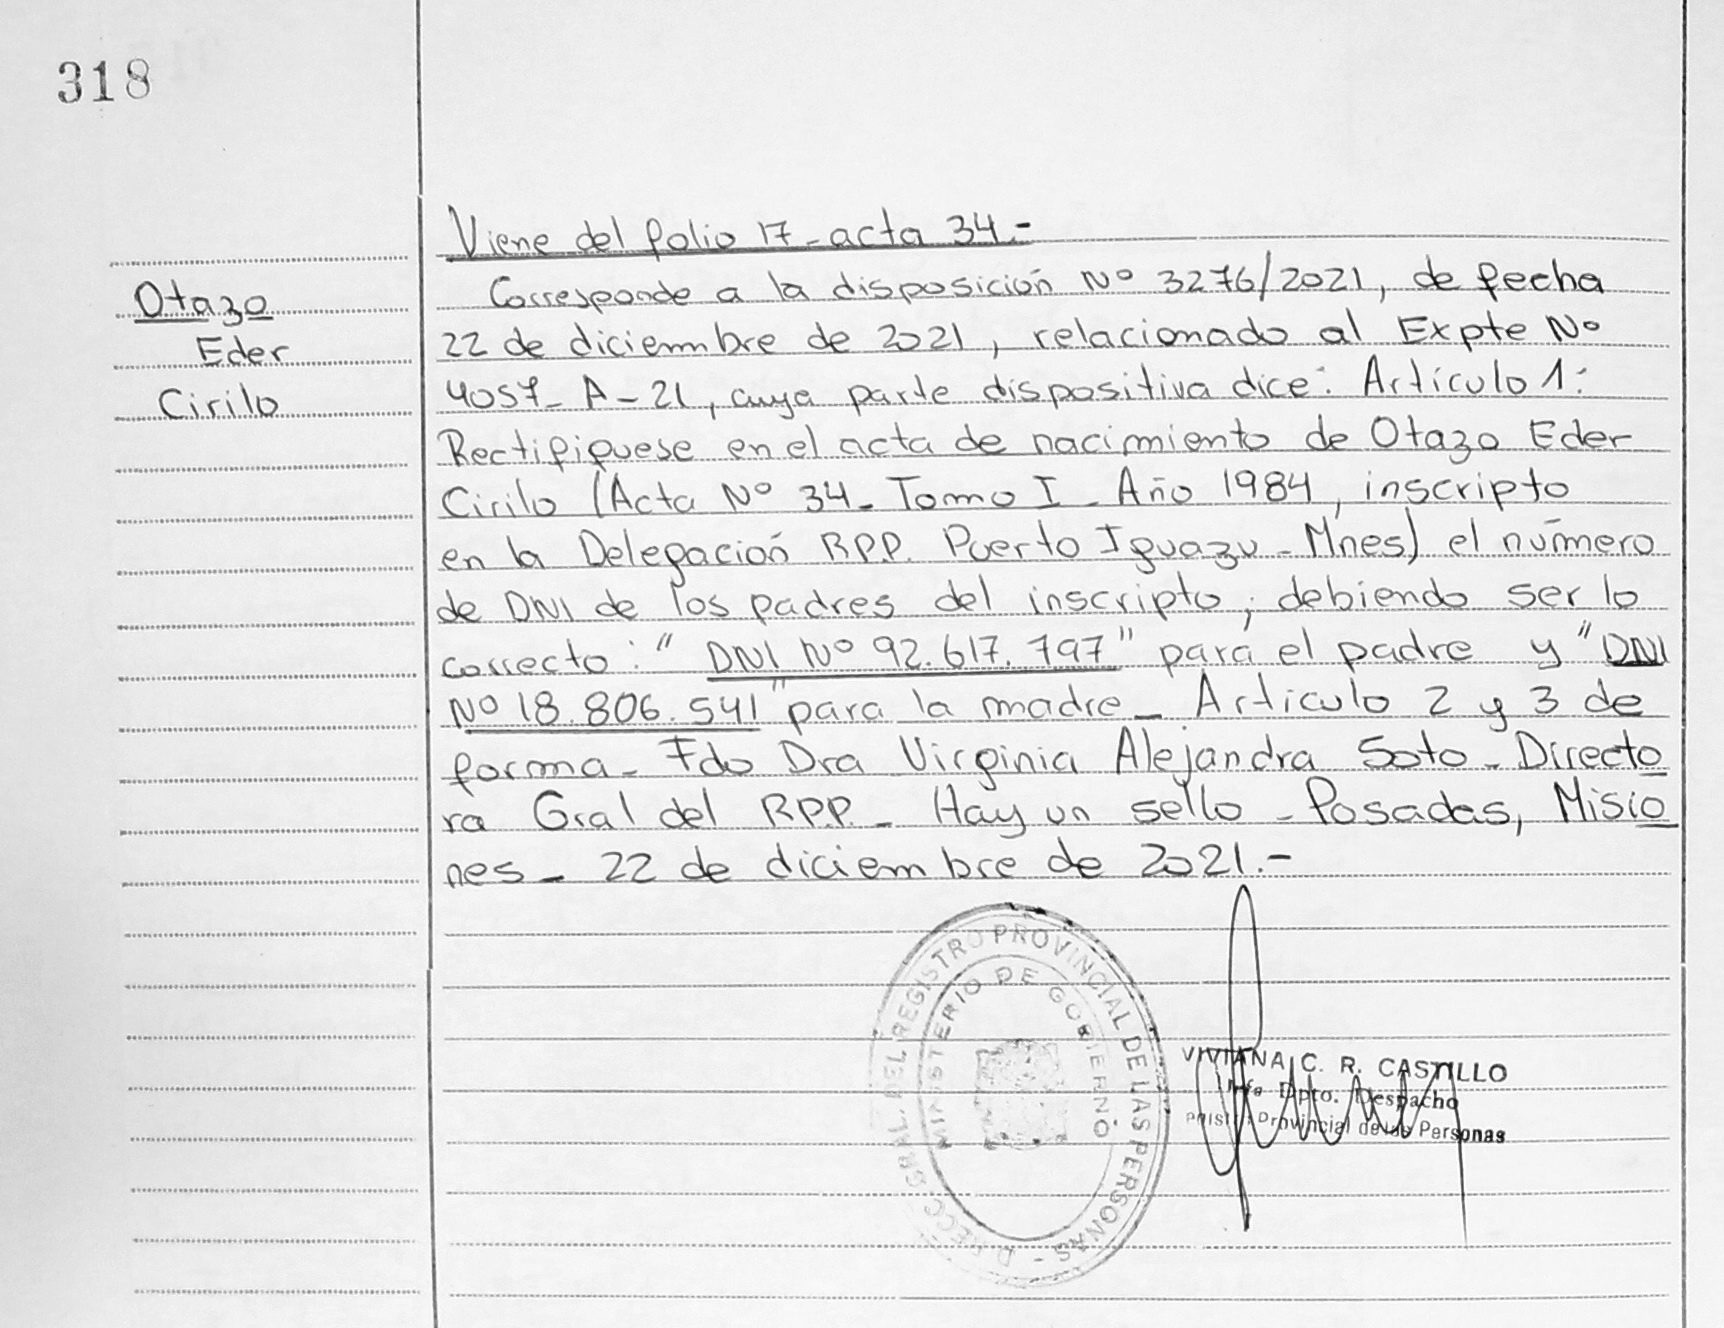 318
Otazo
Eder
Cirilo
Viene del folio 17 - acta 34.-
Corresponde a la disposición Nº 3276/2021, de fecha
22 de diciembre de 2021, relacionado al Expte Nº
4057- A - 21, cuya parte dispositiva dice: Artículo 1:
Rectifiquese en el acta de nacimiento de Otazo Eder
Cirilo (Acta Nº 34 - Tomo I - Año 1984, inscripto
en la Delegación RPP. Puerto Iguazu - Mnes) el número
de DNI de los padres del inscripto; debiendo ser lo
correcto: " DNI Nº 92.617.797" para el padre y "DNI
Nº 18.806.541" para la madre - Articulo 2 y 3 de
forma - Fdo Dra Virginia Alejandra Soto - Directo
ra Gral del RPP. - Hay un sello - Posadas, Misio
nes - 22 de diciembre de 2021.-
GRAL. DEL REGISTRO PROVINCIAL DE LAS PERSONAS -
MINISTERIO DE GOBIERNO
VIVIANA C. R. CASTILLO
Dpto. Despacho
Provincial de las Personas